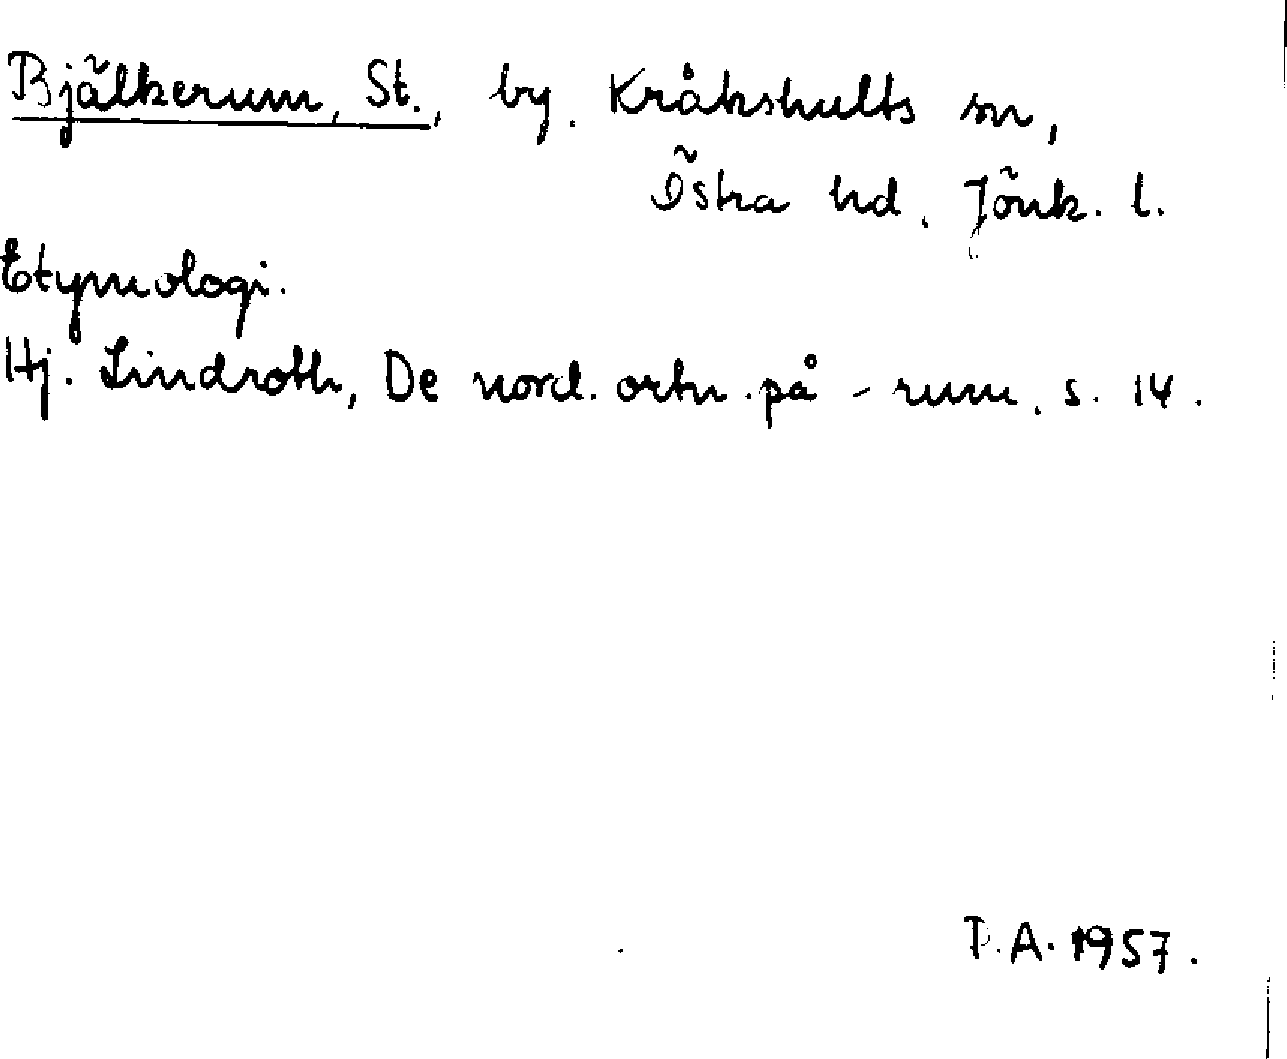 Bjälkerum, St., by. Kråkshults sn,
Östra hd. Jönk. l.
Etymologi.
Hj. Lindroth, De nord. ortn. på -rum, s. 14.
P.A. 1957.